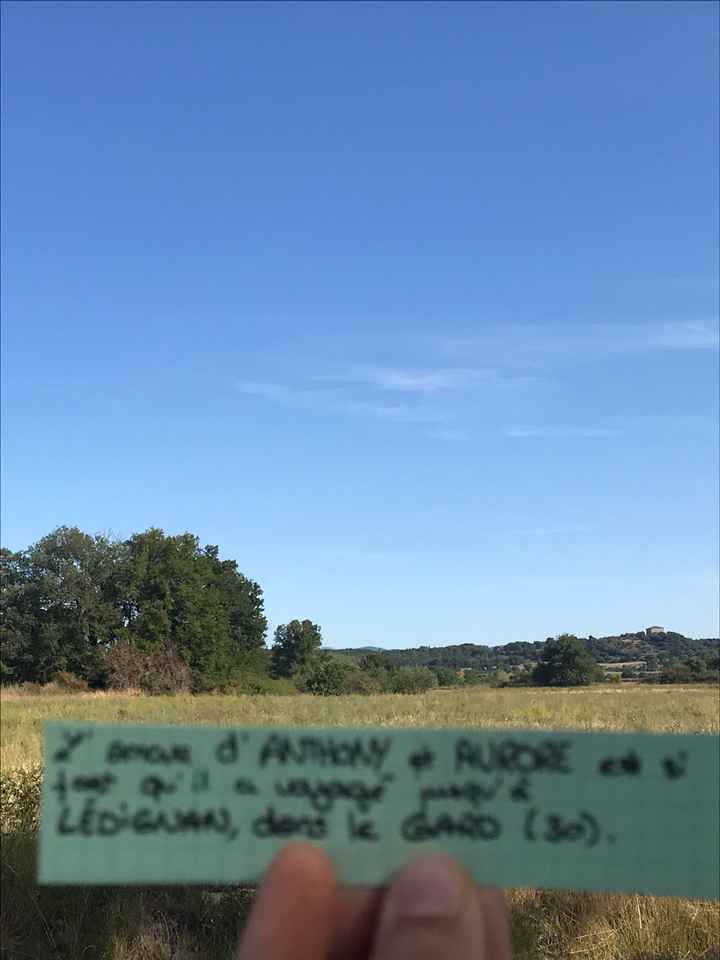 L'amour d'ANTHONY et AURORE est si
fort qu'il a voyagé jusqu'à
LÉDIGNAN, dans le GARD (30).